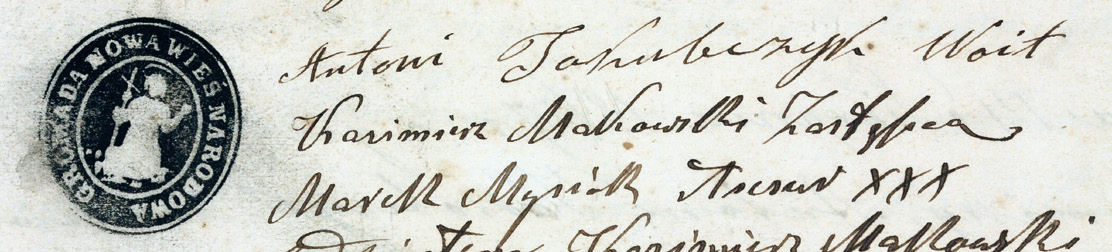 GROMADA NOWA WIEŚ NARODOWA
Antoni Jakubczyk Woit
Kazimierz Makowski Zastępca
Marek Mysiak Asesor XXX
Kazimierz Makowski